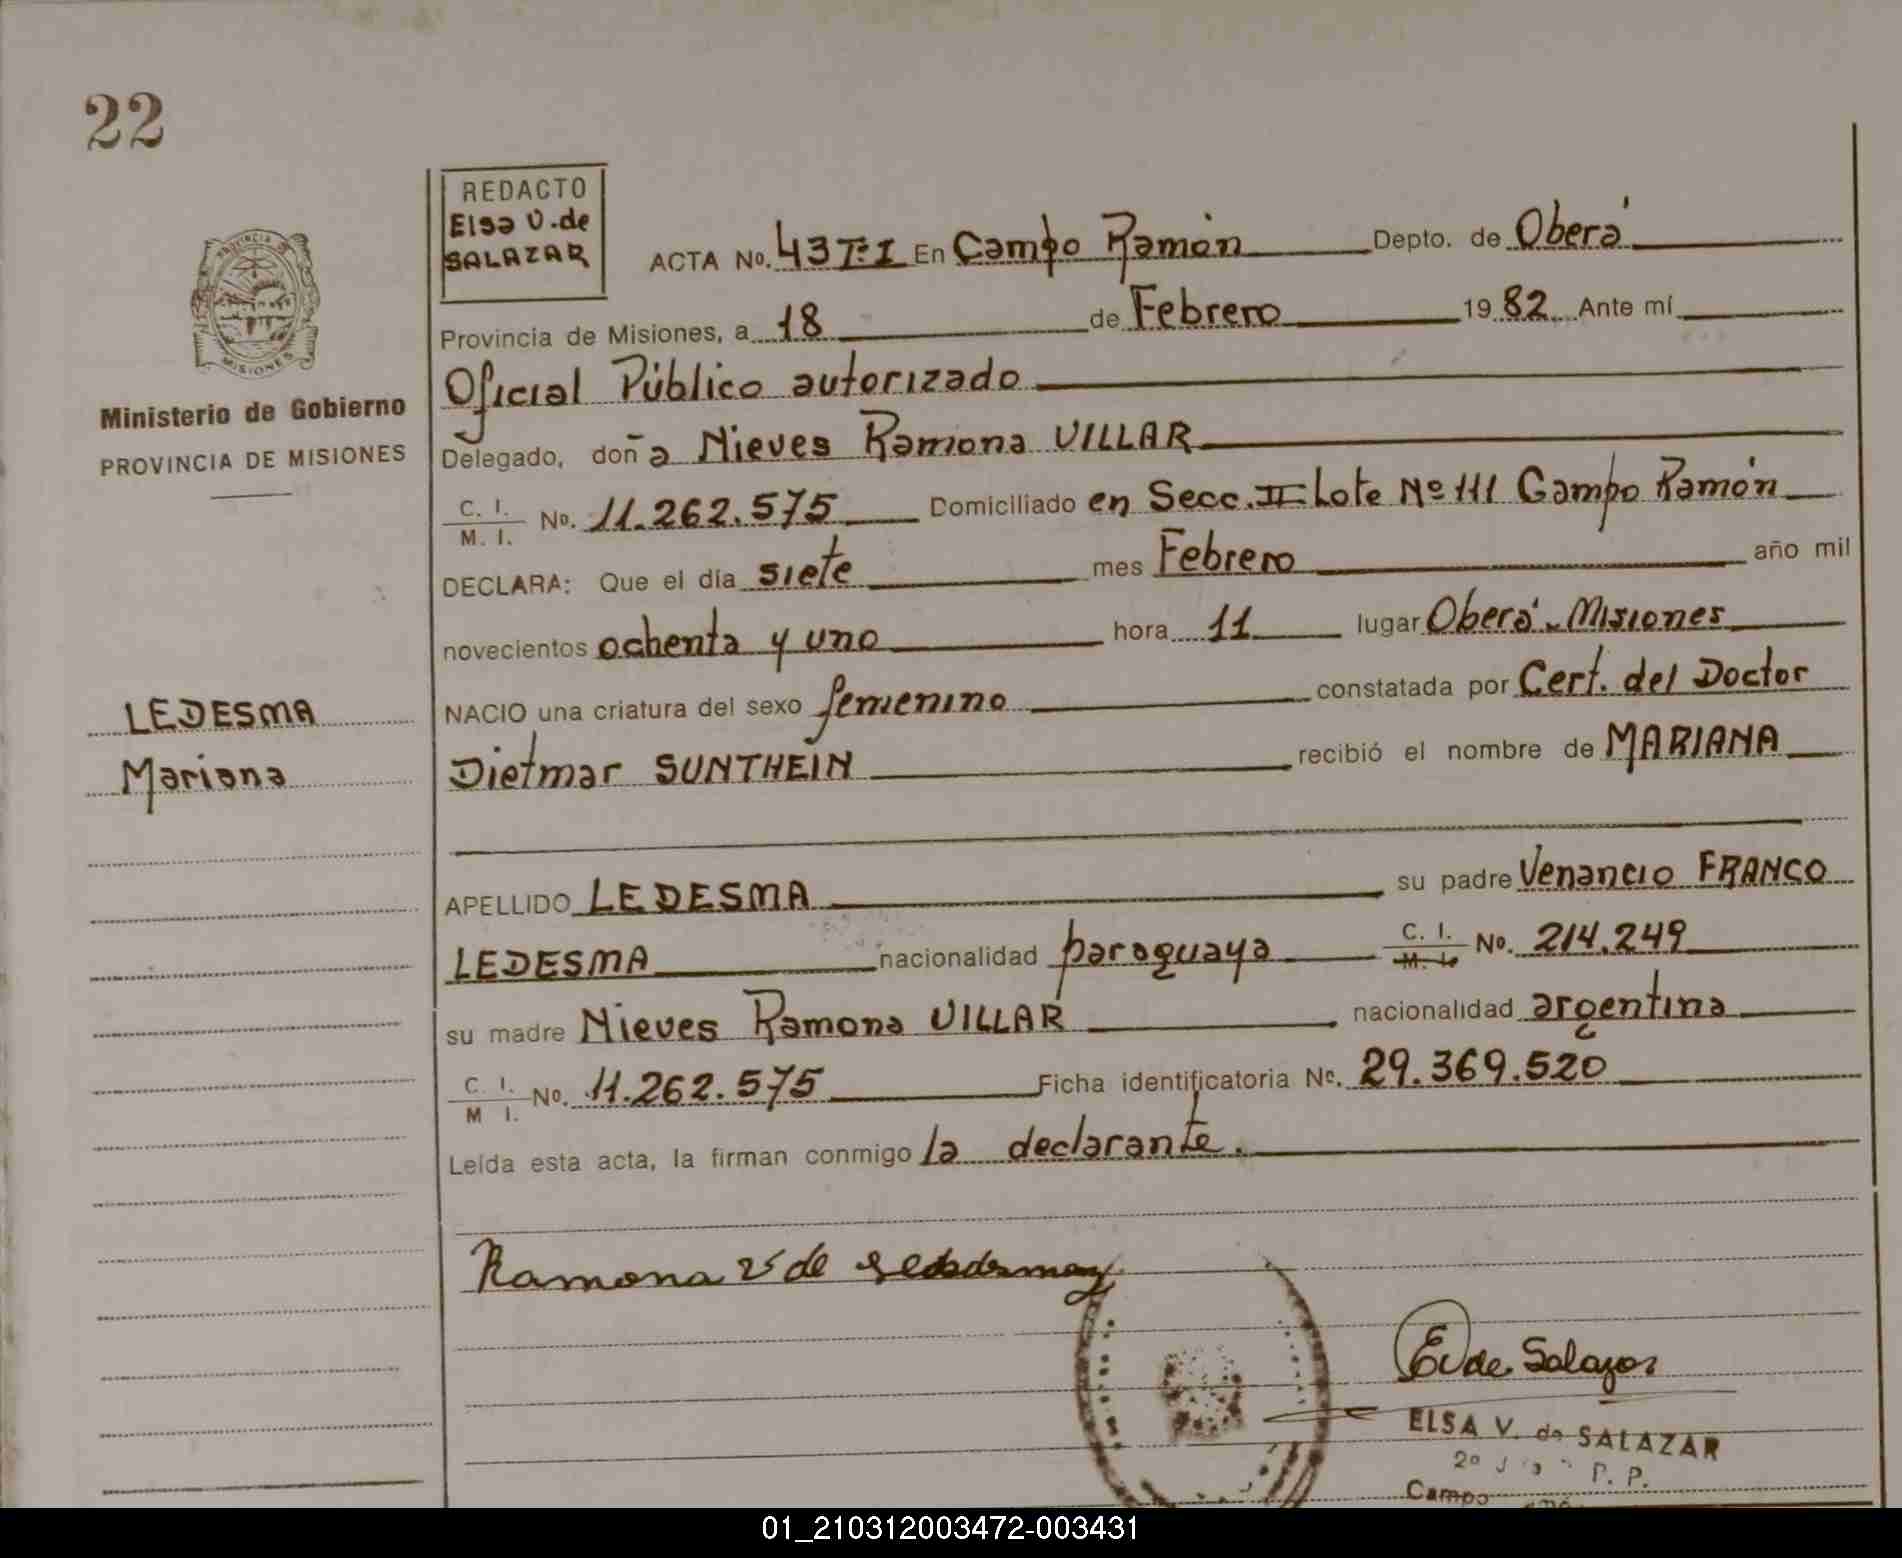 22
REDACTO
Elsa V. de
SALAZAR
PROVINCIA DE
MISIONES
Ministerio de Gobierno
PROVINCIA DE MISIONES
ACTA No. 43 Tº I En Campo Ramón Depto. de Oberá
Provincia de Misiones, a 18 de Febrero 19 82 Ante mí
Oficial Público autorizado
Delegado, doña Nieves Ramona VILLAR
C. I.
M. I. No. 11.262.575 Domiciliado en Secc. II Lote Nº 111 Campo Ramón
DECLARA: Que el día siete mes Febrero año mil
novecientos ochenta y uno hora 11 lugar Oberá - Misiones
LEDESMA
Mariana
NACIO una criatura del sexo femenino constatada por Cert. del Doctor
Dietmar SUNTHEIN recibió el nombre de MARIANA
APELLIDO LEDESMA su padre Venancio FRANCO
LEDESMA nacionalidad paraguaya C. I. M. I. No. 214.249
su madre Nieves Ramona VILLAR nacionalidad argentina
C. I.
M I. No. 11.262.575 Ficha identificatoria No. 29.369.520
Leída esta acta, la firman conmigo la declarante.
Ramona V de
E V de Salazar
ELSA V. de SALAZAR
P. P.
Campo
01_210312003472-003431